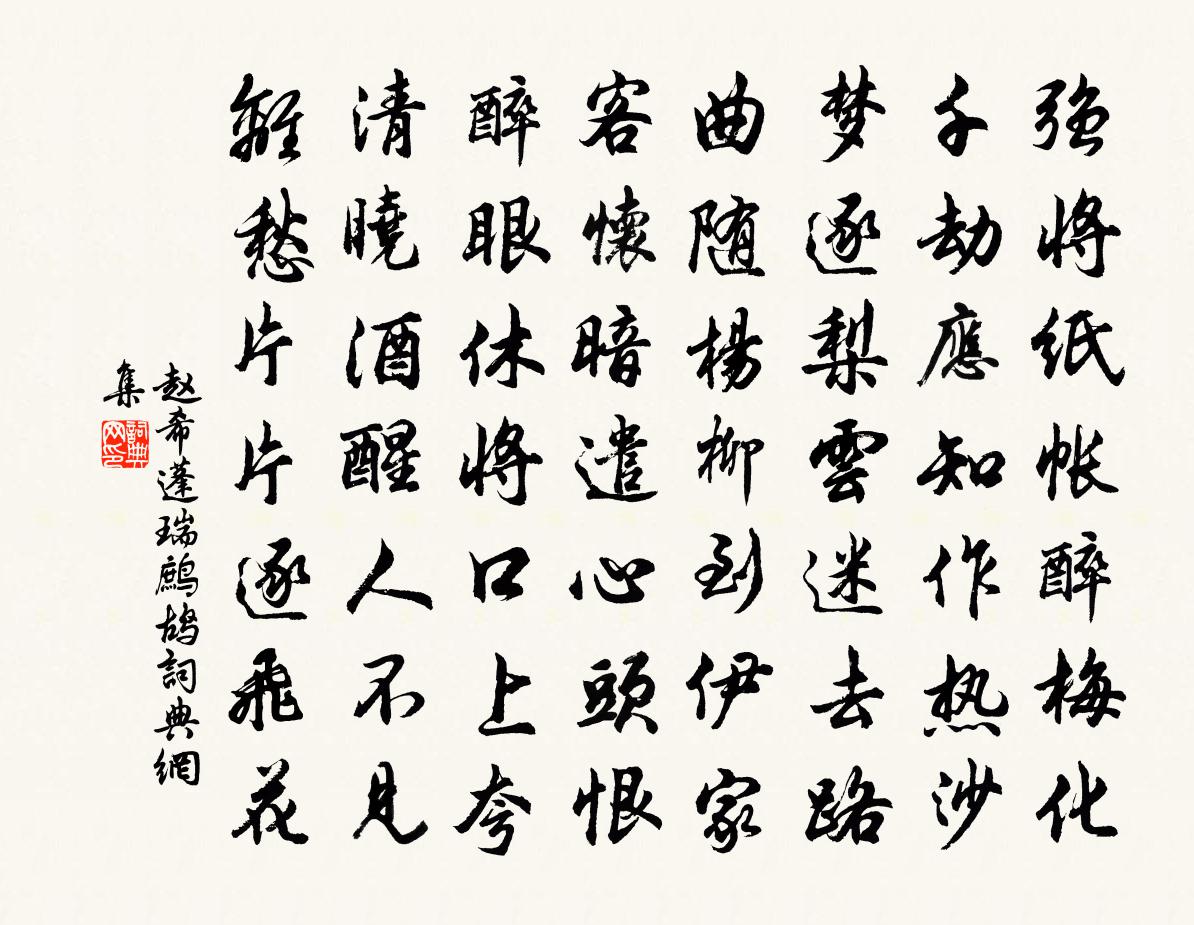 强将纸帐醉梅化
千劫應知作热沙
梦逐梨雲迷去路
曲随楊柳到伊家
客懷暗遣心頭恨
醉眼休将口上夸
清曉酒醒人不見
離愁片片逐飛花
赵希蓬瑞鷓鴣詞典網
集
詞典
网印